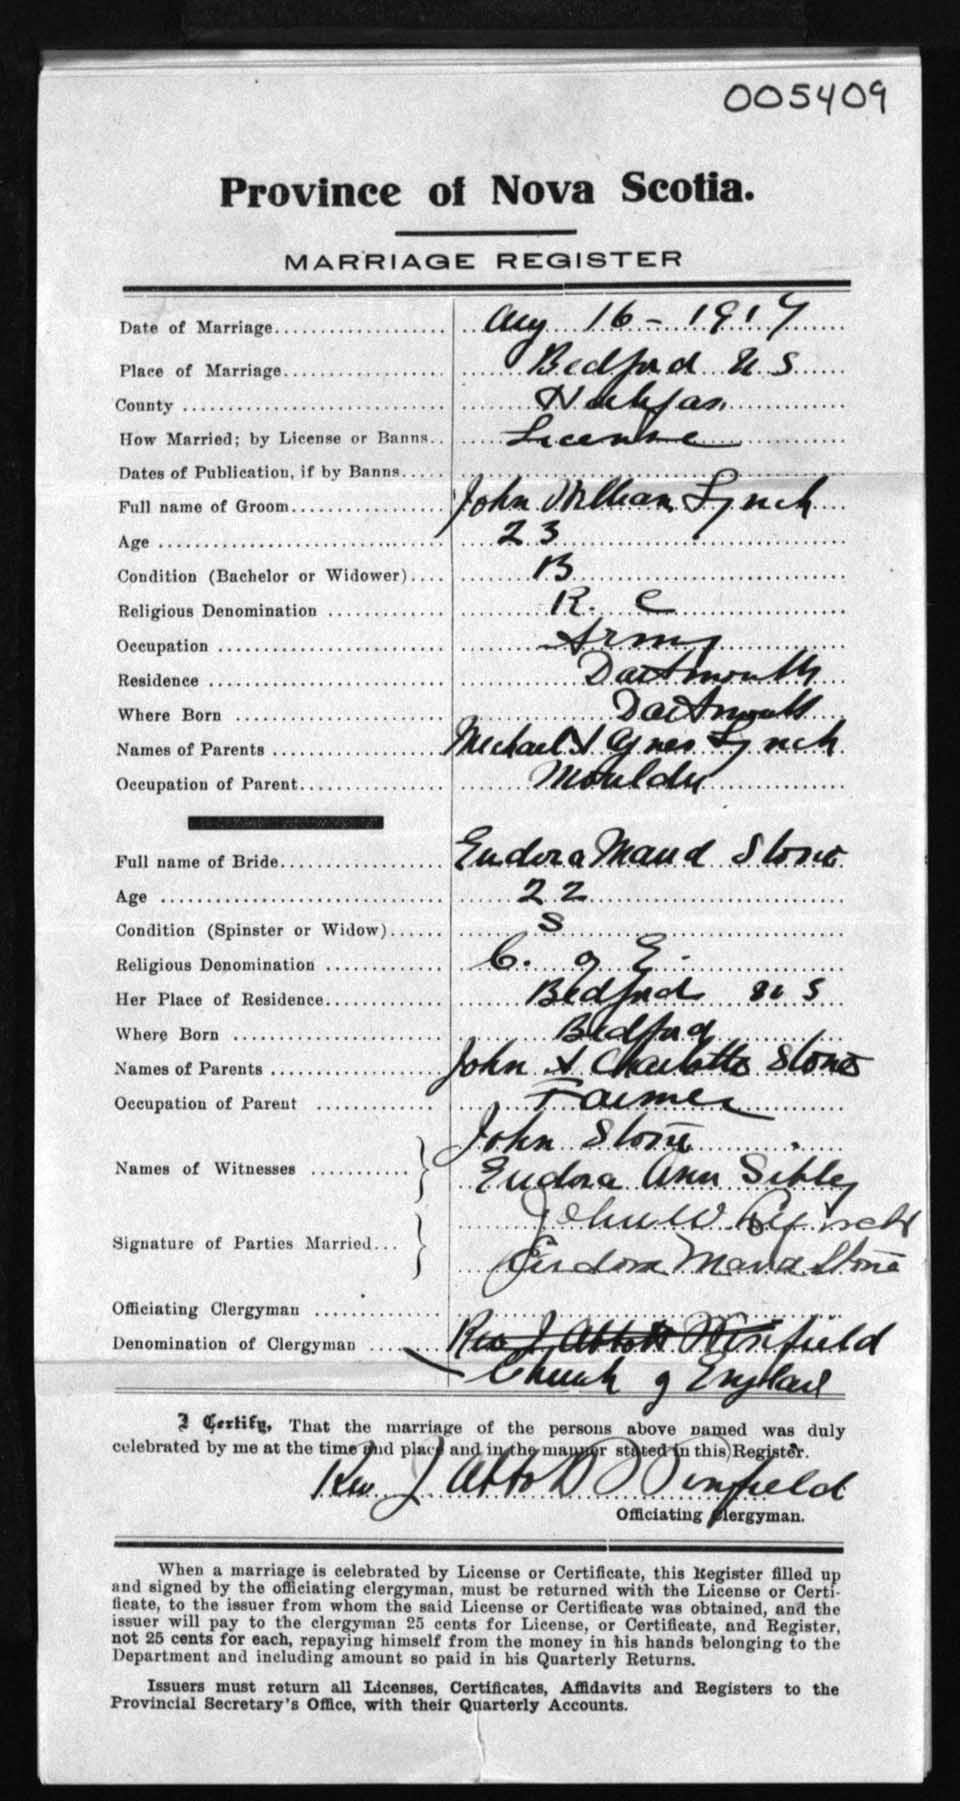 005409
Province of Nova Scotia.
MARRIAGE REGISTER
Date of Marriage.................... Aug 16 - 1917
Place of Marriage.................... Bedford N S
County .................... Halifax
How Married; by License or Banns.. License
Dates of Publication, if by Banns.....
Full name of Groom.................... John William Lynch
Age .................... 23
Condition (Bachelor or Widower).... B
Religious Denomination .................... R. C
Occupation .................... Army
Residence .................... Dartmouth
Where Born .................... Dartmouth
Names of Parents .................... Michael & Agnes Lynch
Occupation of Parent.................... Moulder
Full name of Bride.................... Eudora Maud Stone
Age .................... 22
Condition (Spinster or Widow)...... S
Religious Denomination .................... C. of E.
Her Place of Residence.................... Bedford N S
Where Born .................... Bedford
Names of Parents .................... John & Charlotte Stone
Occupation of Parent .................... Farmer
John Stone
Names of Witnesses ........... Eudora Ann Sibley
John W Lynch
Signature of Parties Married... Eudora Maud Stone
Officiating Clergyman ....................
Denomination of Clergyman ........ Rev J Abbott Winfield
Church of England
I Certify, That the marriage of the persons above named was duly
celebrated by me at the time and place and in the manner stated in this Register.
Rev J Abbott Winfield
Officiating Clergyman.
When a marriage is celebrated by License or Certificate, this Register filled up
and signed by the officiating clergyman, must be returned with the License or Certi-
ficate, to the issuer from whom the said License or Certificate was obtained, and the
issuer will pay to the clergyman 25 cents for License, or Certificate, and Register,
not 25 cents for each, repaying himself from the money in his hands belonging to the
Department and including amount so paid in his Quarterly Returns.
Issuers must return all Licenses, Certificates, Affidavits and Registers to the
Provincial Secretary's Office, with their Quarterly Accounts.